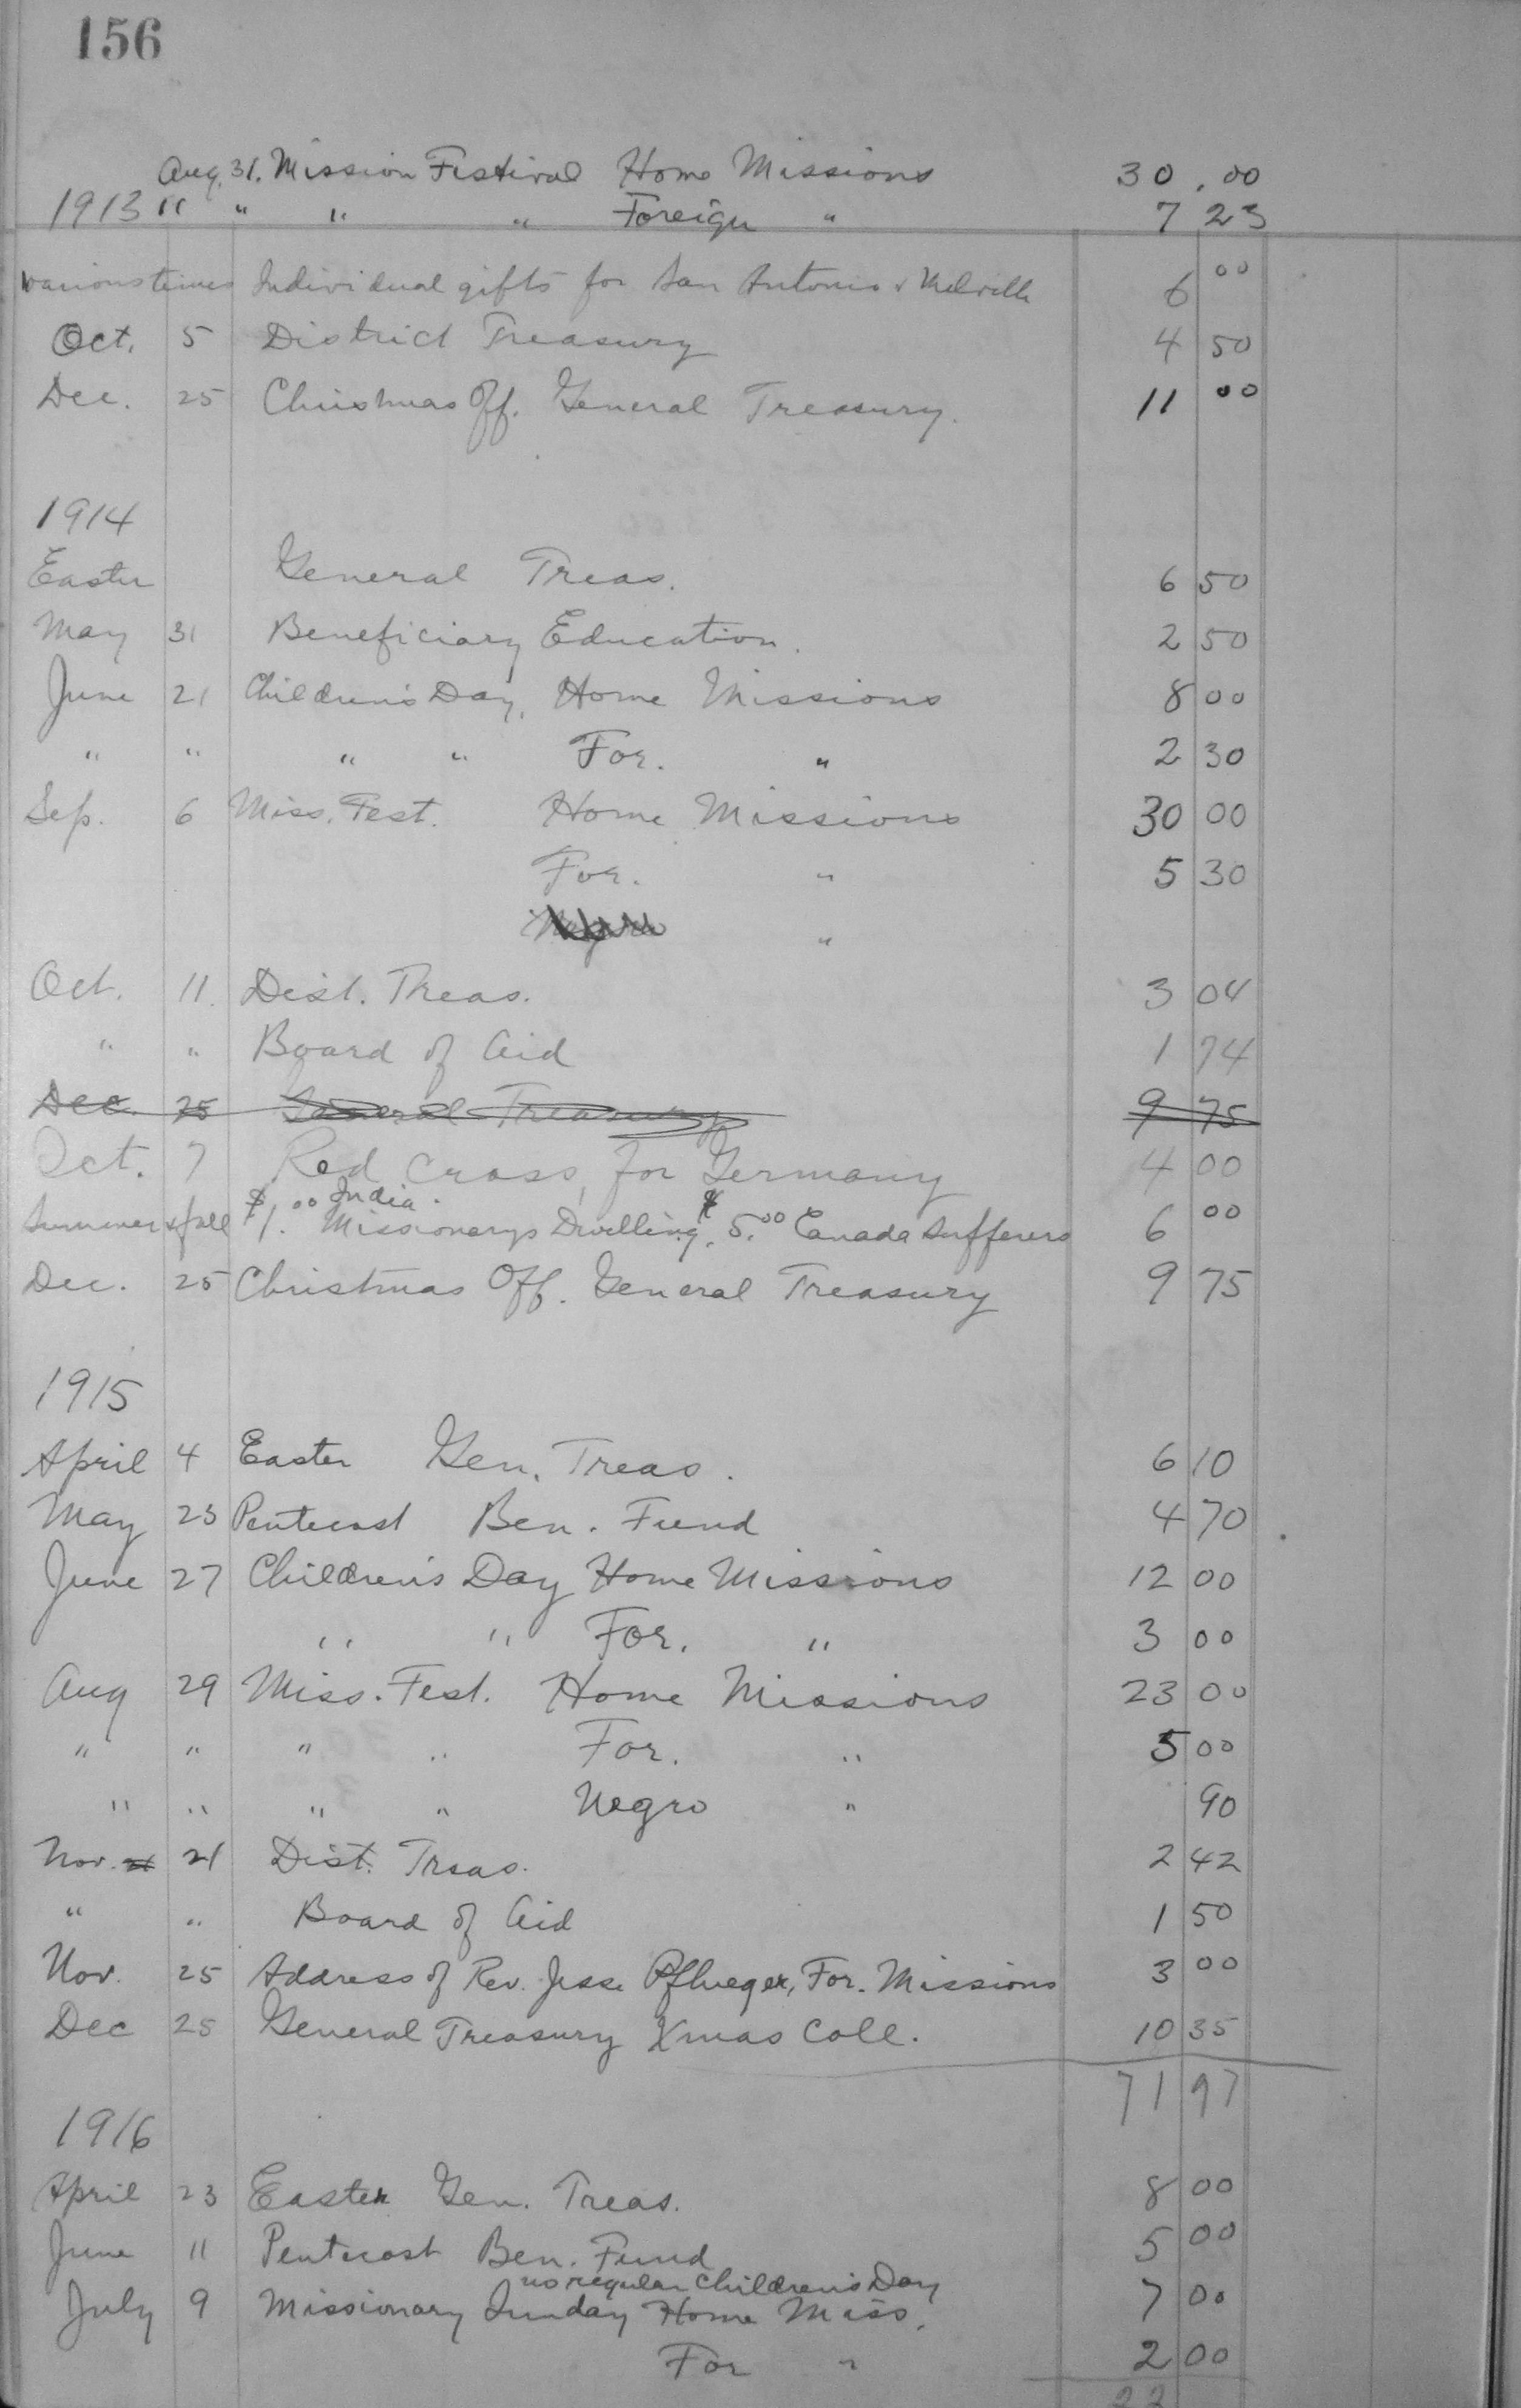 156
Aug. 31. Mission Festival Home Missions 30.00
1913 " " " " Foreign " 7 23
Various times Individual gifts for San Antonio & Melville 6 00
Oct. 5 District Treasury 4 50
Dec. 25 Christmas Off. General Treasury. 11 00
1914
Easter General Treas. 6 50
May 31 Beneficiary Education. 2 50
June 21 Children's Day, Home Missions 8 00
" " " " For. " 2 30
Sep. 6 Miss. Fest. Home Missions 30 00
For. " 5 30
Negro "
Oct. 11. Dist. Treas. 3 04
" " Board of Aid 1 74
Dec. 25 General Treasury 9 75
Oct. 7 Red Cross, for Germany 4 00
India.
Summer & fall $1.00 Missionarys Dwelling, $5.00 Canada Sufferers 6 00
Dec. 25 Christmas Off. General Treasury 9 75
1915
April 4 Easter Gen. Treas. 6 10
May 23 Pentecost Ben. Fund 4 70
June 27 Children's Day Home Missions 12 00
" " For. " 3 00
Aug 29 Miss. Fest. Home Missions 23 00
" " " " For. " 5 00
" " " " Negro " 90
Nov. 21 21 Dist. Treas. 2 42
" " Board of Aid 1 50
Nov. 25 Address of Rev. Jesse Pflueger, For. Missions 3 00
Dec 25 General Treasury Xmas Coll. 10 35
71 97
1916
April 23 Easter Gen. Treas. 8 00
June 11 Pentecost Ben. Fund 5 00
no regular Children's Day
July 9 Missionary Sunday Home Miss. 7 00
For " 2 00
22